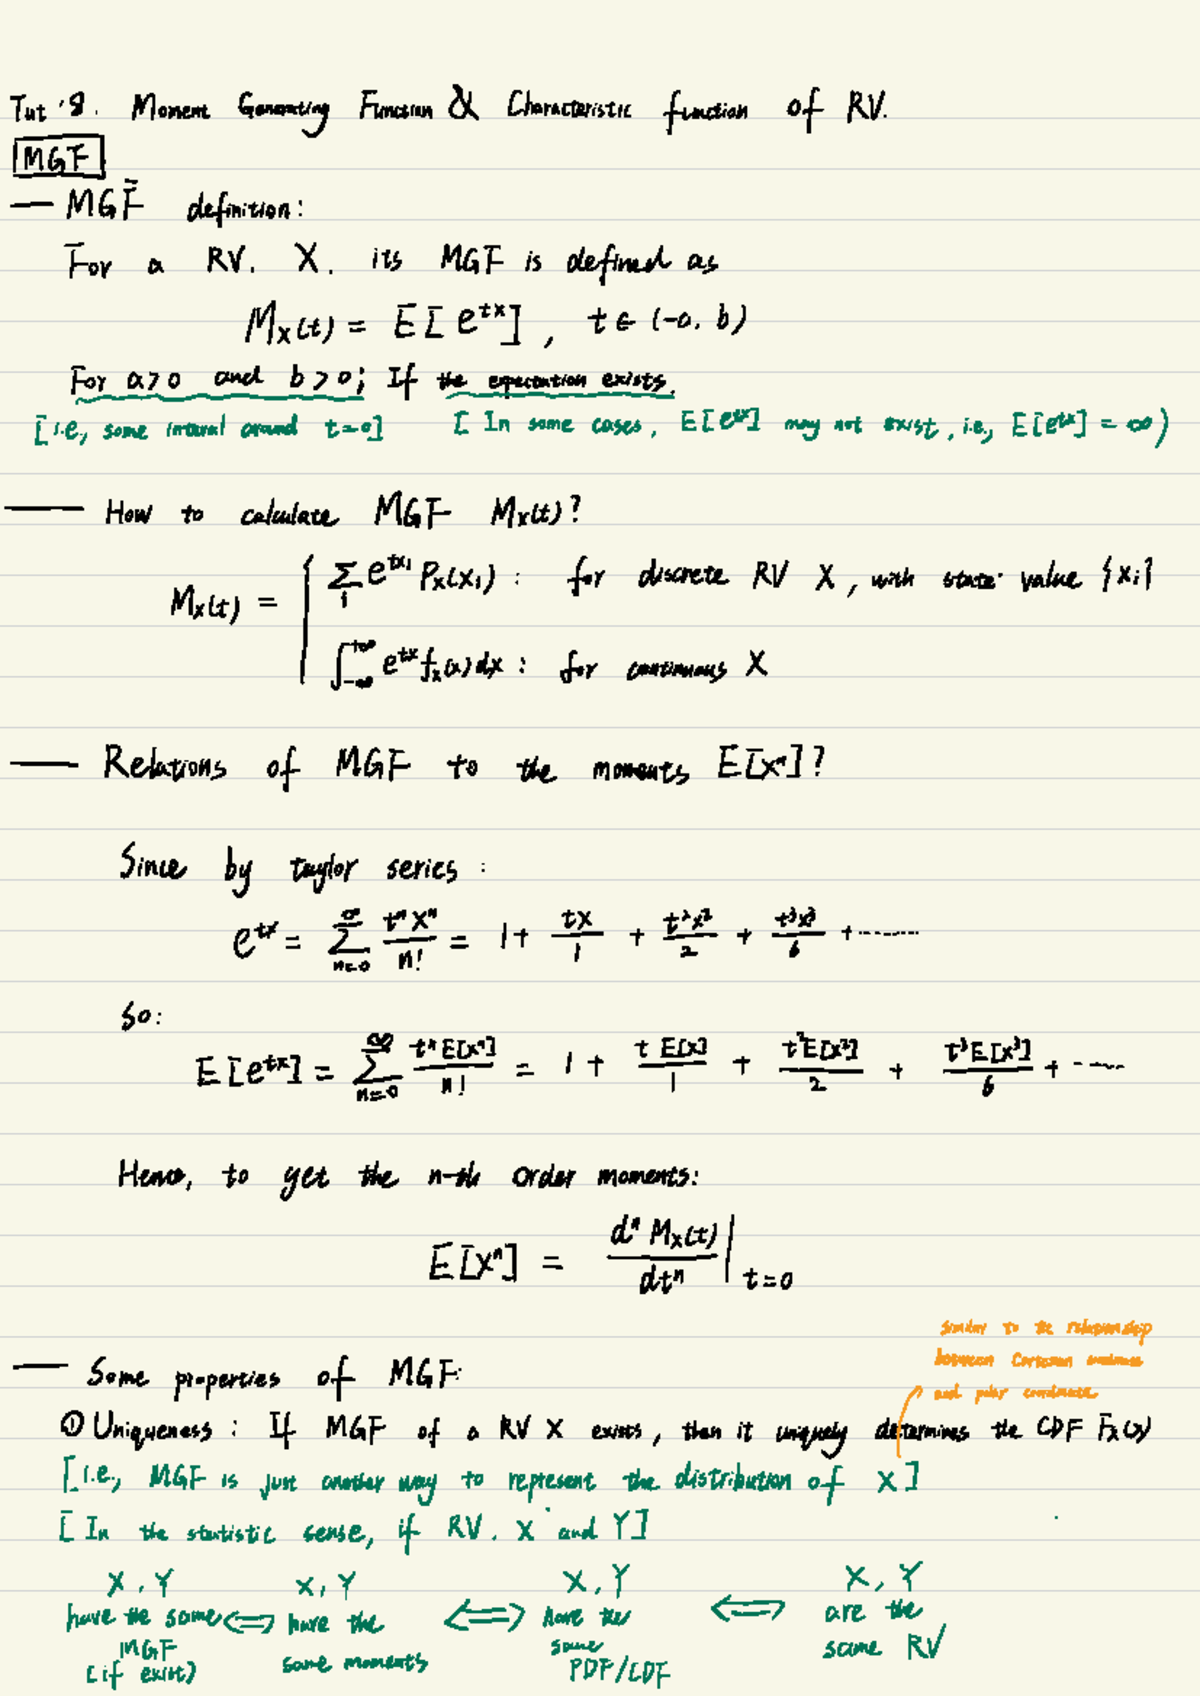 Tut 8. Moment Generating Function & Characteristic function of RV.
MGF
— MGF definition:
For a RV. X. its MGF is defined as
Mx(t) = E[e^{tx}], t ∈ (-a, b)
For a>0 and b>0; If the expectation exists.
[i.e., some interval around t=0] [In some cases, E[e^{tx}] may not exist, i.e., E[e^{tx}] = ∞)
— How to calculate MGF Mx(t)?
Mx(t) = { Σ_i e^{txi} Px(xi) : for discrete RV X, with state value {xi}
∫_{-∞}^{+∞} e^{tx} fx(x) dx : for continuous X
— Relations of MGF to the moments E[X^n]?
Since by taylor series :
e^{tx} = Σ_{n=0}^{∞} t^n X^n / n! = 1 + tx/1 + t²x²/2 + t³x³/6 + ......
So:
E[e^{tx}] = Σ_{n=0}^{∞} t^n E[X^n] / n! = 1 + t E[X]/1 + t² E[X²]/2 + t³ E[X³]/6 + ......
Hence, to get the n-th order moments:
E[X^n] = d^n Mx(t) / dt^n |_{t=0}
similar to the relationship
between Cartesian coordinate
and polar coordinate
— Some properties of MGF:
① Uniqueness : If MGF of a RV X exists, then it uniquely determines the CDF Fx(x)
[i.e., MGF is just another way to represent the distribution of X]
[In the statistic sense, if RV. X and Y]
X, Y X, Y X, Y X, Y
have the same ⟺ have the ⟺ have the ⟺ are the
MGF same moments same same RV
[if exist) PDF/CDF